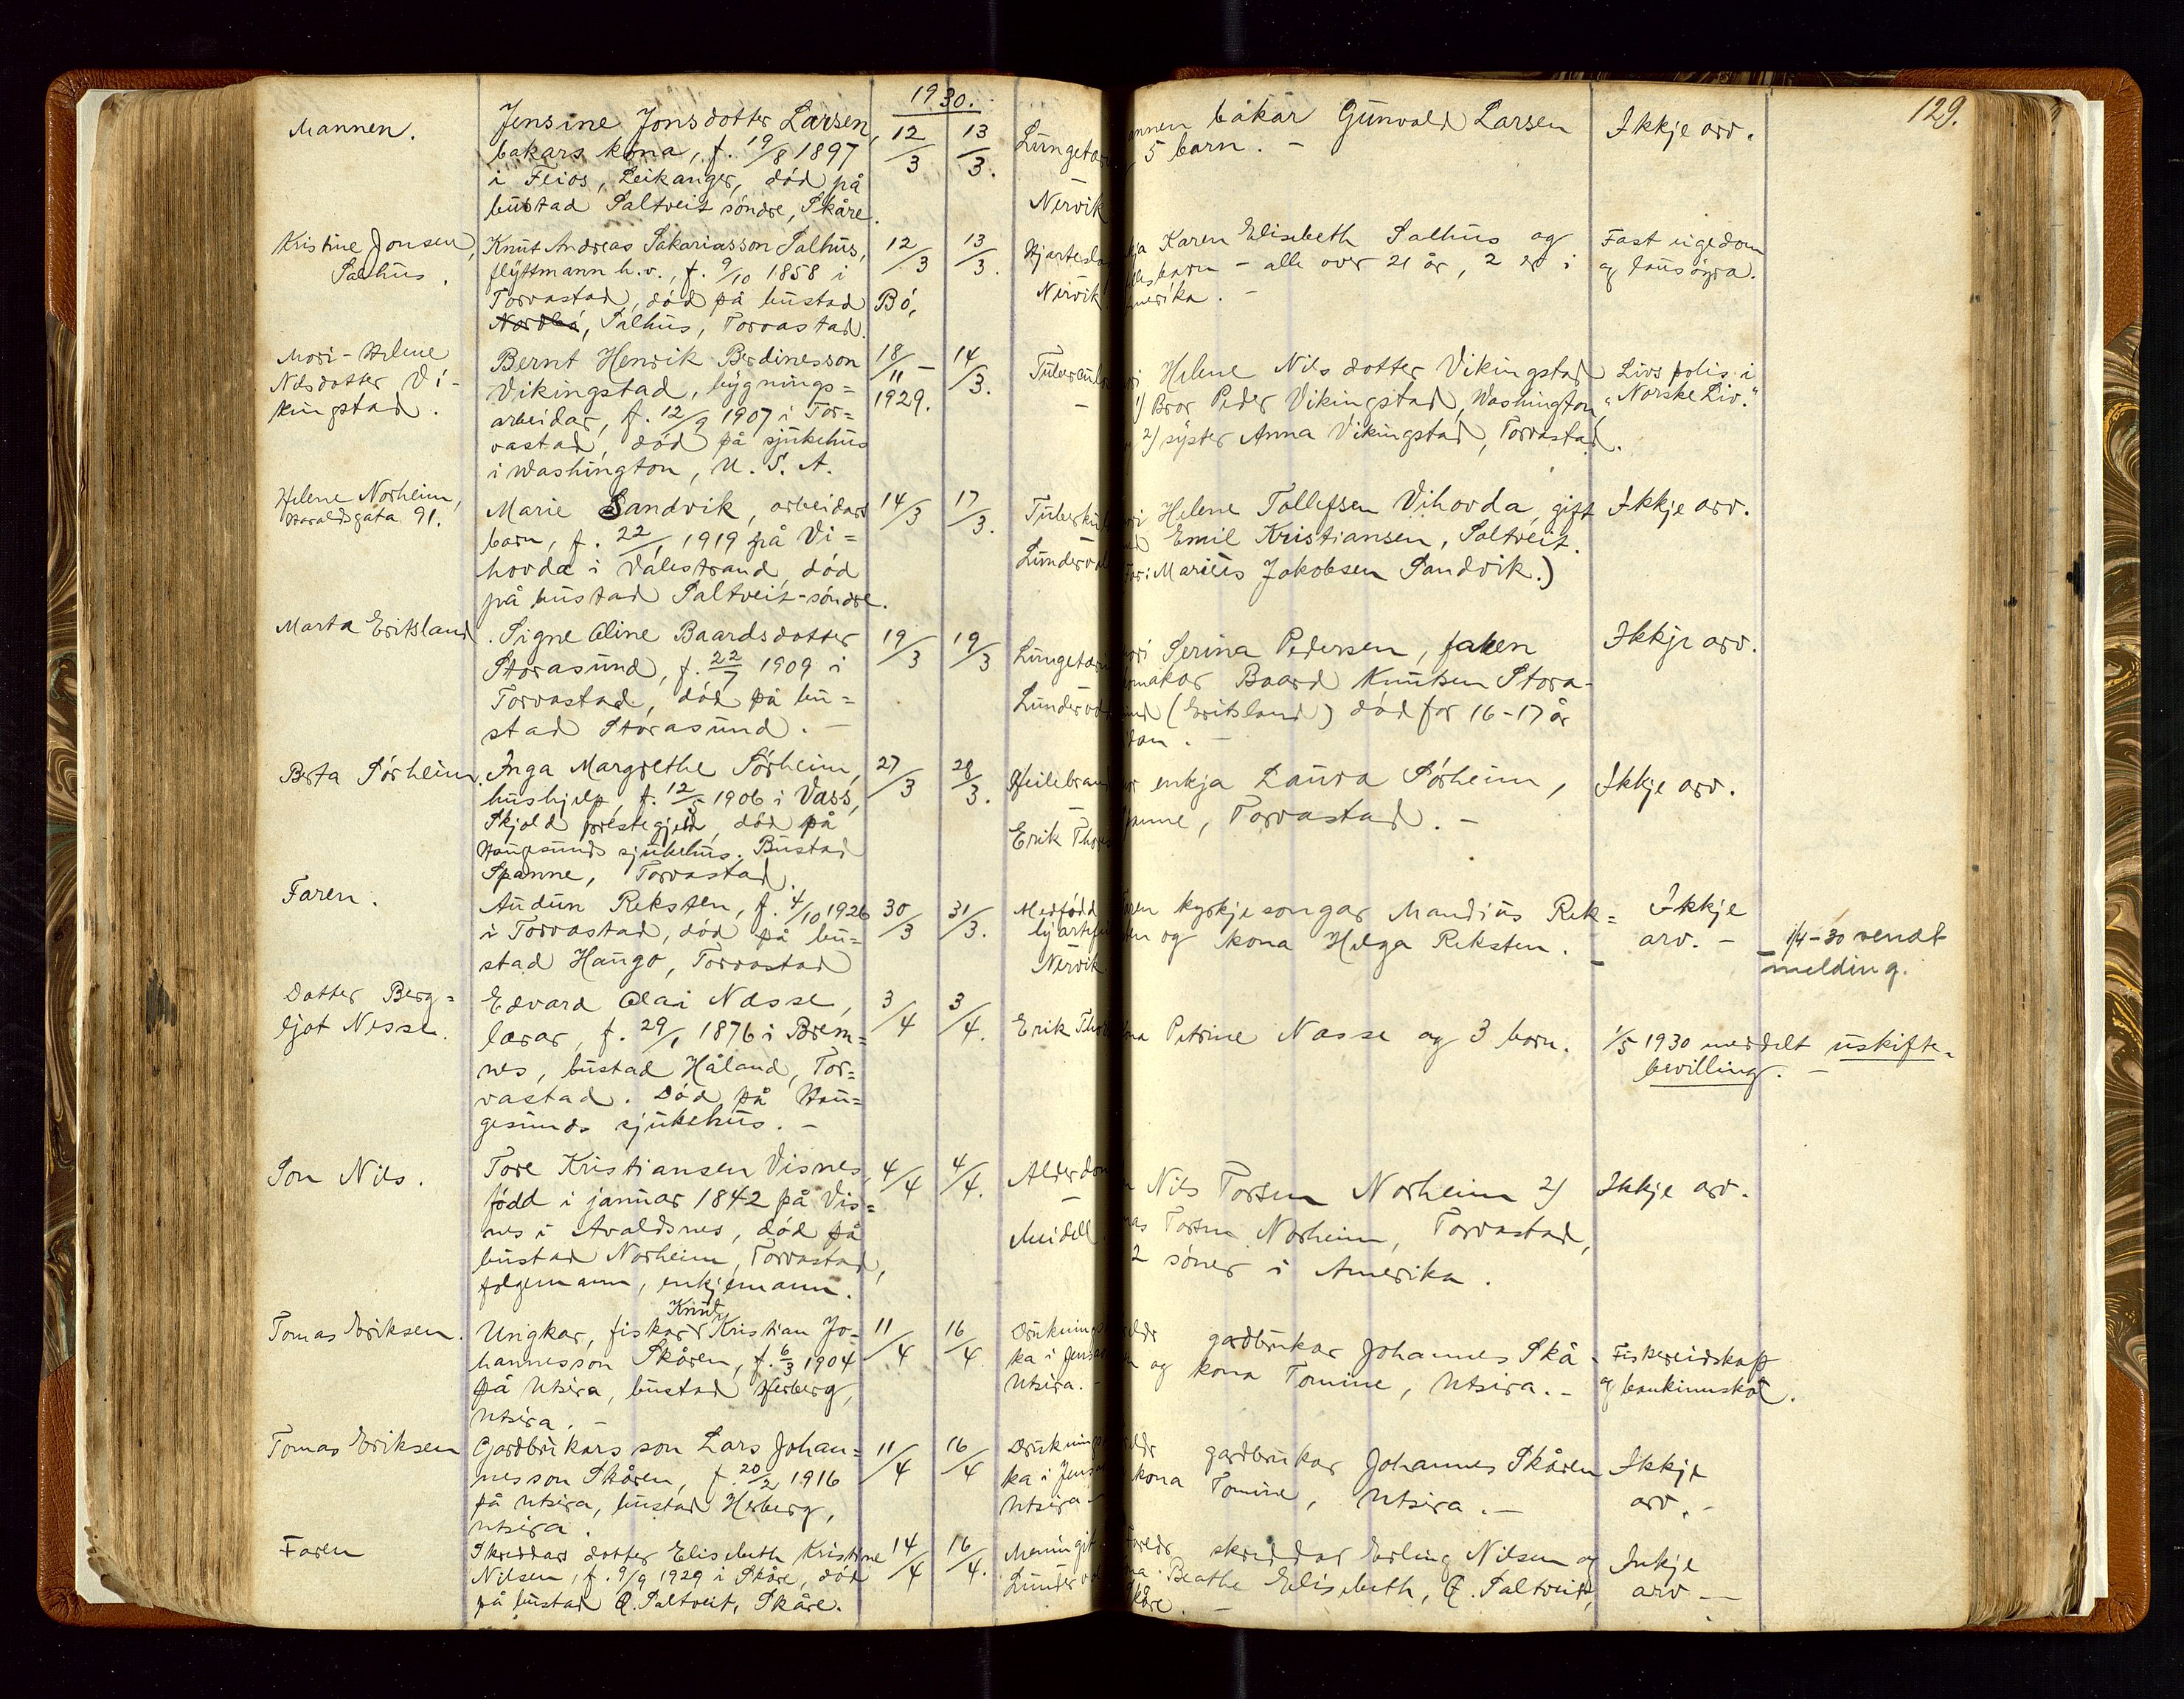 129.
1930.
Mannen.
Jensine Jonsdotter Larsen,
bakars kona, f. 19/8 1897
i Feios, Leikanger, död på
bustad Saltveit söndre, Skåre.
12/3
13/3.
Lungetær
Nervik
bakar Gunvald Larsen
5 barn. -
Ikkje arv.
Kristine Jonsen,
Salhus.
Knut Andreas Sakariasson Salhus,
flyttmann h.v., f. 9/10 1858 i
Torvastad, död på bustad Bö,
Nordbö, Salhus, Torvastad.
12/3
13/3.
Hjartesla
Nervik
Karen Elisebeth Salhus og
barn - alle over 21 år, 2 er i
merika. -
Fast eigedom
og lausöyra.
Mori - Helene
Nilsdotter Vi-
kingstad.
Bernt Henrik Berdinesson
Vikingstad, bygnings=
arbeidar, f. 12/9 1907 i Tor=
vastad, död på sjukehus
i Washington, U. S. A.
18/11 -
1929.
14/3.
Tubercul
-
Helene Nilsdotter Vikingstad
1) Bror Peder Vikingstad, Washington,
2) syster Anna Vikingstad, Torvastad.
Livspolis i
"Norske Liv."
Helene Norheim,
Haraldsgata 91.
Marie Sandvik, arbeidar
barn, f. 22/1 1919 på Vi=
hovda i Valestrand, död
på bustad Saltveit-söndre.
14/3
17/3.
Tuberkul
Lundervol
Helene Tollefsen Vihovda, gift
Emil Kristiansen, Saltveit.
Marius Jakobsen Sandvik.)
Ikkje arv.
Marta Eritsland.
Signe Oline Baardsdotter
Storasund, f. 22/7 1909 i
Torvastad, död på bu=
stad Storasund. -
19/3
19/3
Lungetær
Lundervol
Serina Pedersen, faren
makar Baard Knutsen Stora-
(Eritsland) död for 16-17 år
dan. -
Ikkje arv.
Berta Sörheim.
Inga Margrethe Sörheim,
hushjelp, f. 12/5 1906 i Vass,
Skjold prestegjeld, död på
Haugesunds sjukehus. Bustad
Spanne, Torvastad.
27/3
28/3.
Heilebran
Erik Thor
enkja Laura Sörheim,
anne, Torvastad. -
Ikkje arv.
Faren.
Audun Reksten, f. 4/10 1926
i Torvastad, död på bu=
stad Haugo, Torvastad
30/3
31/3.
Medfödd
hjartefei
Nervik.
kyrkjesongar Mandius Rek=
sten og kona Helga Reksten. -
Ikkje
arv. -
1/4-30 sendt
melding.
Dotter Berg=
ljot Nesse.
Edvard Olai Næsse,
lærar, f. 29/1 1876 i Brem=
nes, bustad Håland, Tor=
vastad. Död på Hau=
gesunds sjukehus. -
3/4
3/4.
Erik Thor
Petrine Næsse og 3 born.
1/5 1930 meddelt uskifte-
bevilling. -
Son Nils.
Tore Kristiansen Visnes,
född i januar 1842 på Vis=
nes i Avaldsnes, död på
bustad Norheim, Torvastad,
folgemann, enkjemann.
4/4
4/4.
Alderdom
-
Meidell
Nils Torsen Norheim 2)
Torsen Norheim, Torvastad,
2 söner i Amerika.
Ikkje arv.
Tomas Eriksen.
Knut
Ungkar, fiskar Kristian Jo-
hannesson Skåren, f. 6/3 1904
på Utsira, bustad Herberg,
Utsira. -
11/4
16/4.
Drukning
ka i Jensa
Utsira. -
gardbrukar Johannes Skå-
og kona Tomine, Utsira. -
Fiskereidskap
og bankinnskot.
Tomas Eriksen
Gardbrukars son Lars Johan=
nesson Skåren, f. 20/2 1916
på Utsira, bustad Herberg,
Utsira.
11/4
16/4
Drukning
ka i Jensa
Utsira -
gardbrukar Johannes Skåren
kona Tomine, Utsira. -
Ikkje
arv. -
Faren
Skreddar dotter Elisebeth Kristine
Nilsen, f. 9/9 1929 i Skåre, död
på bustad Q. Saltveit, Skåre.
14/4
16/4.
Meningit
Lundervol
Foreldr skreddar Erling Nilsen og
Beathe Elisebeth, Q. Saltveit,
Skåre. -
Inkje
arv -